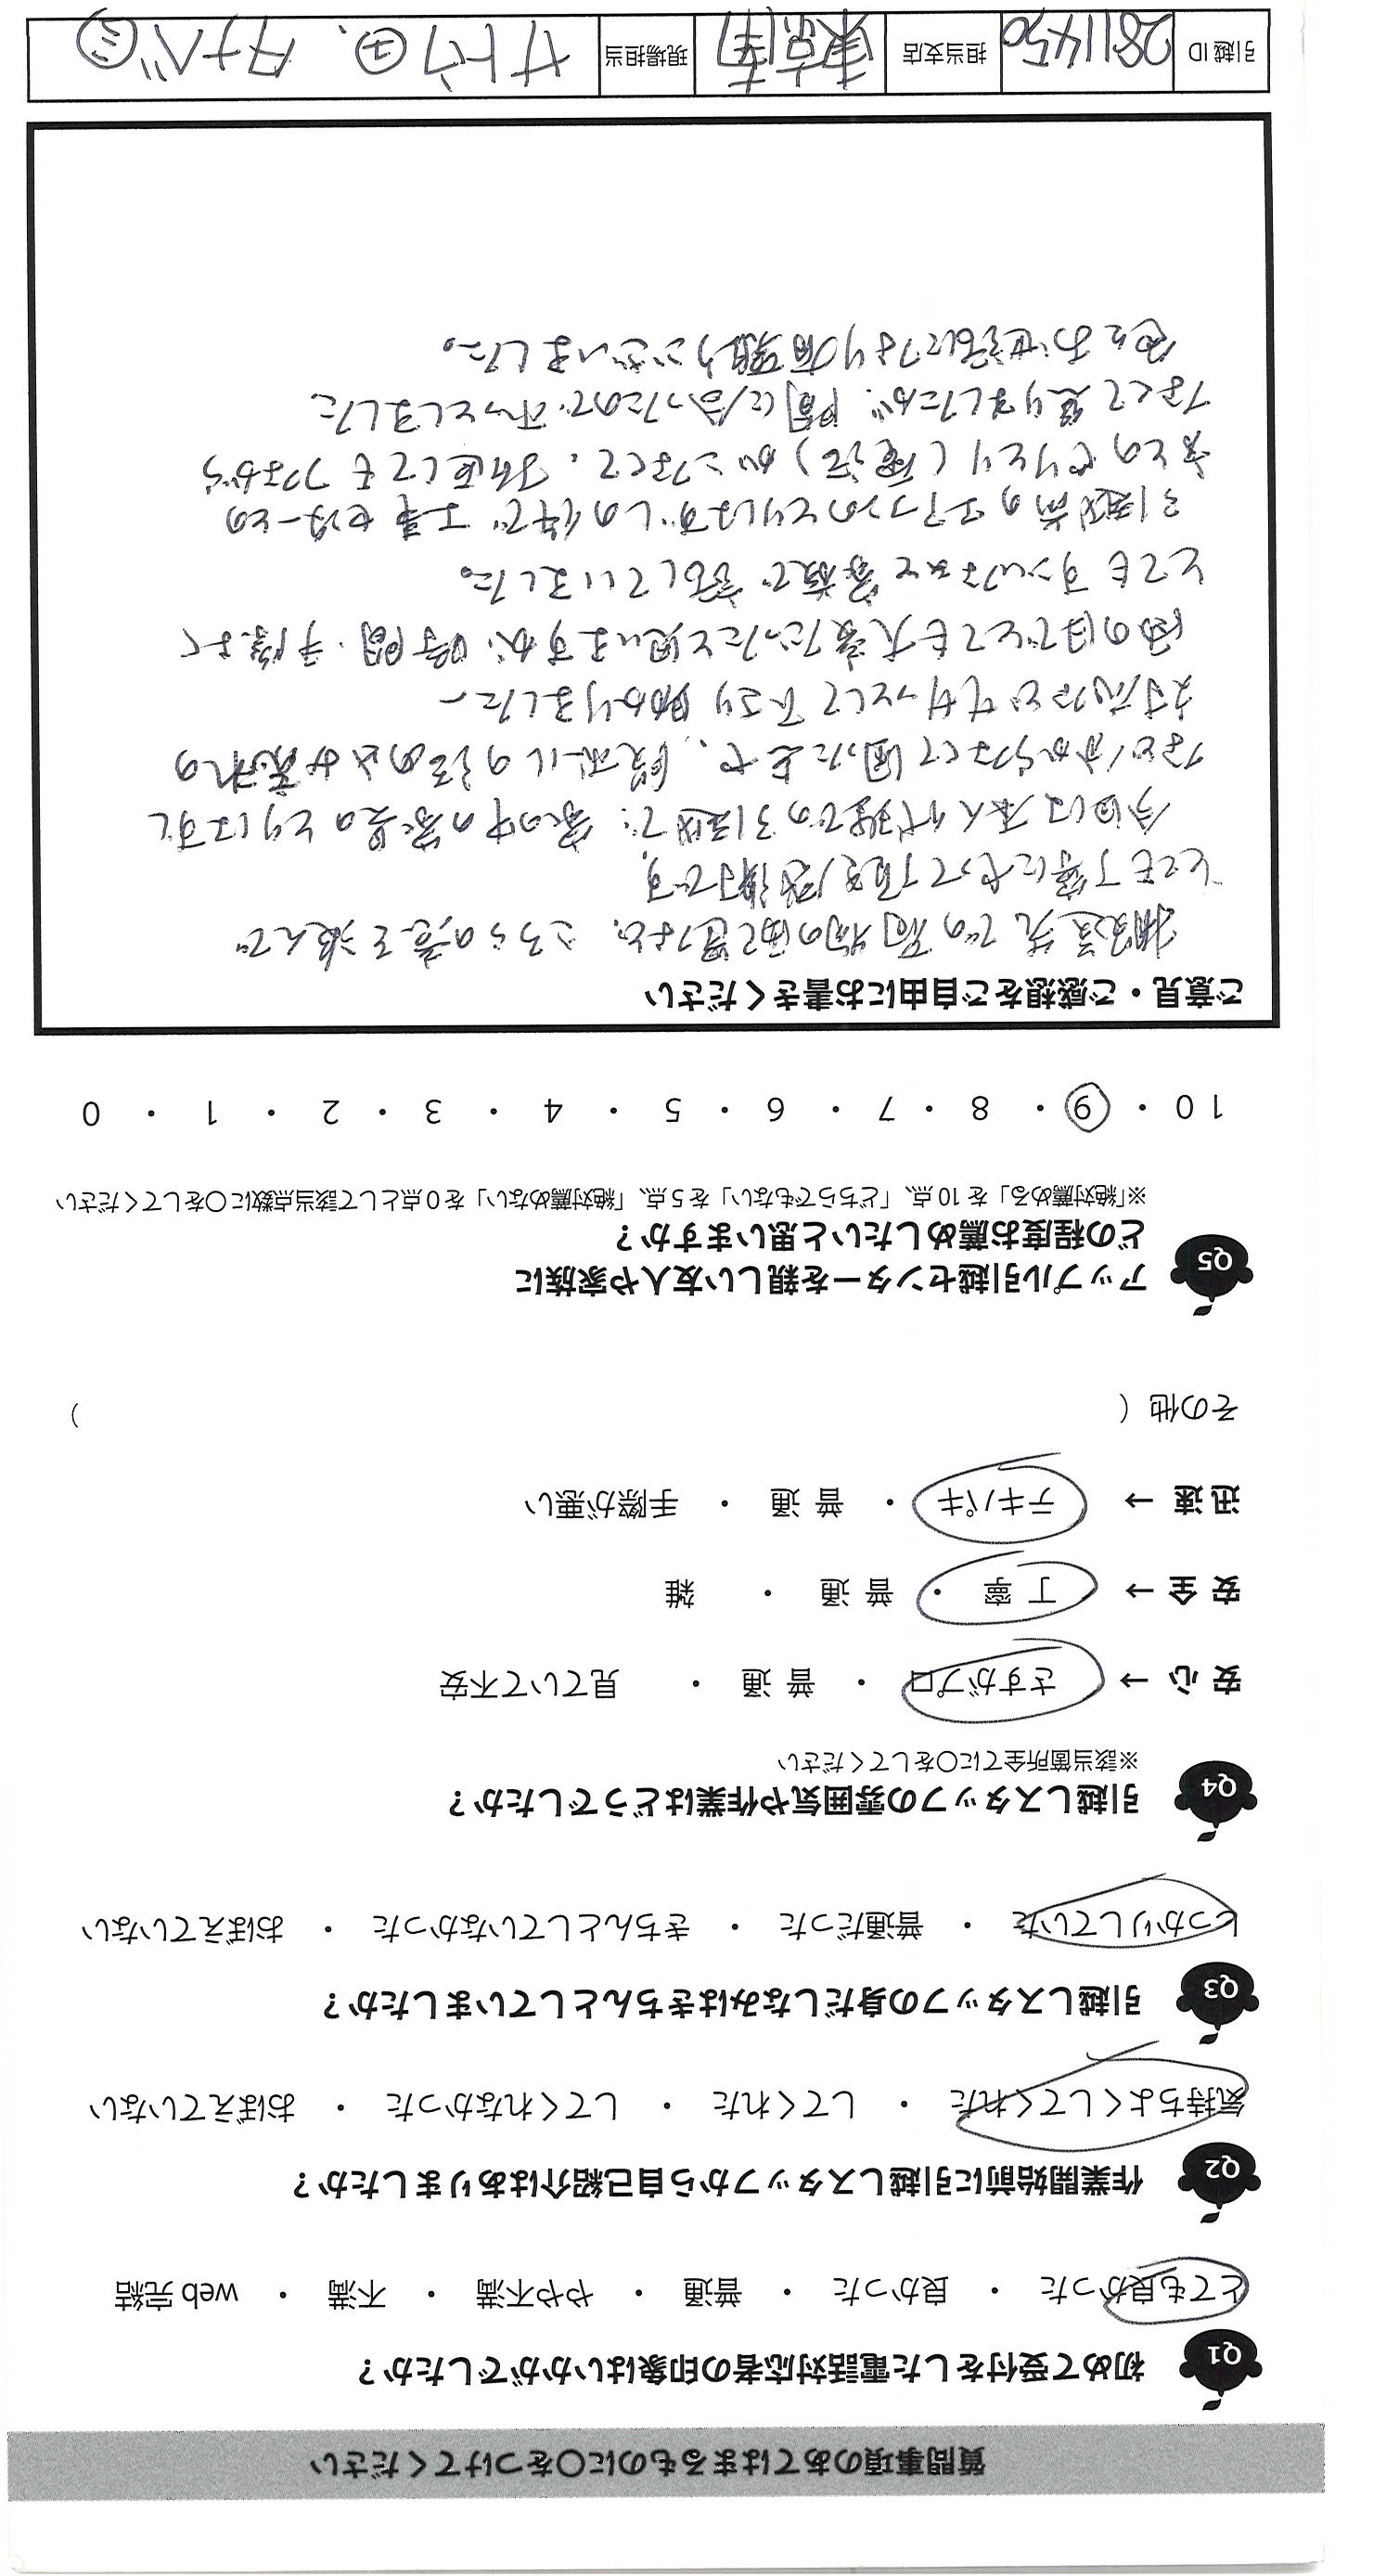 質問事項のあてはまるものに〇をつけてください
Q1 初めて受付をした電話対応者の印象はいかがでしたか？
とても良かった ・ 良かった ・ 普通 ・ やや不満 ・ 不満 ・ web 完結
Q2 作業開始前に引越しスタッフから自己紹介はありましたか？
気持ちよくしてくれた ・ してくれた ・ してくれなかった ・ おぼえていない
Q3 引越しスタッフの身だしなみはきちんとしていましたか？
しっかりしていた ・ 普通だった ・ きちんとしていなかった ・ おぼえていない
Q4 引越しスタッフの雰囲気や作業はどうでしたか？
※該当箇所全てに〇をしてください
安心 → さすがプロ ・ 普通 ・ 見ていて不安
安全 → 丁寧 ・ 普通 ・ 雑
迅速 → テキパキ ・ 普通 ・ 手際が悪い
その他（ ）
Q5 アップル引越センターを親しい友人や家族に
どの程度お薦めしたいと思いますか？
※「絶対薦める」を 10 点、「どちらでもない」を 5 点、「絶対薦めない」を 0 点として該当点数に〇をしてください
10 ・ 9 ・ 8 ・ 7 ・ 6 ・ 5 ・ 4 ・ 3 ・ 2 ・ 1 ・ 0
ご意見・ご感想をご自由にお書きください
搬送先での荷物の配置など、こちらの意を汲んで
とても丁寧にやって頂き感謝です。
今回は本人代理での引越で、家の中の家具のとりはずし
など分からなくて困った上で、段ボールの詰め込み荒れの
対応などもサッとして下さり助かりました。
雨の日でとても大変だったと思いますが、時間・手際よく
とてもすごいなぁと家族で話していました。
引越前のエアコンのとりはずしの件で工事センターとの
方とのやりとり（電話）がこなくて、折返してもつながら
なくて焦りましたが、間に合ったのでホッとしました。
色々お世話になり有難うございました。
引越 ID 2811450 担当支店 東京南 現場担当 サトウ㋣、タナベ㋯